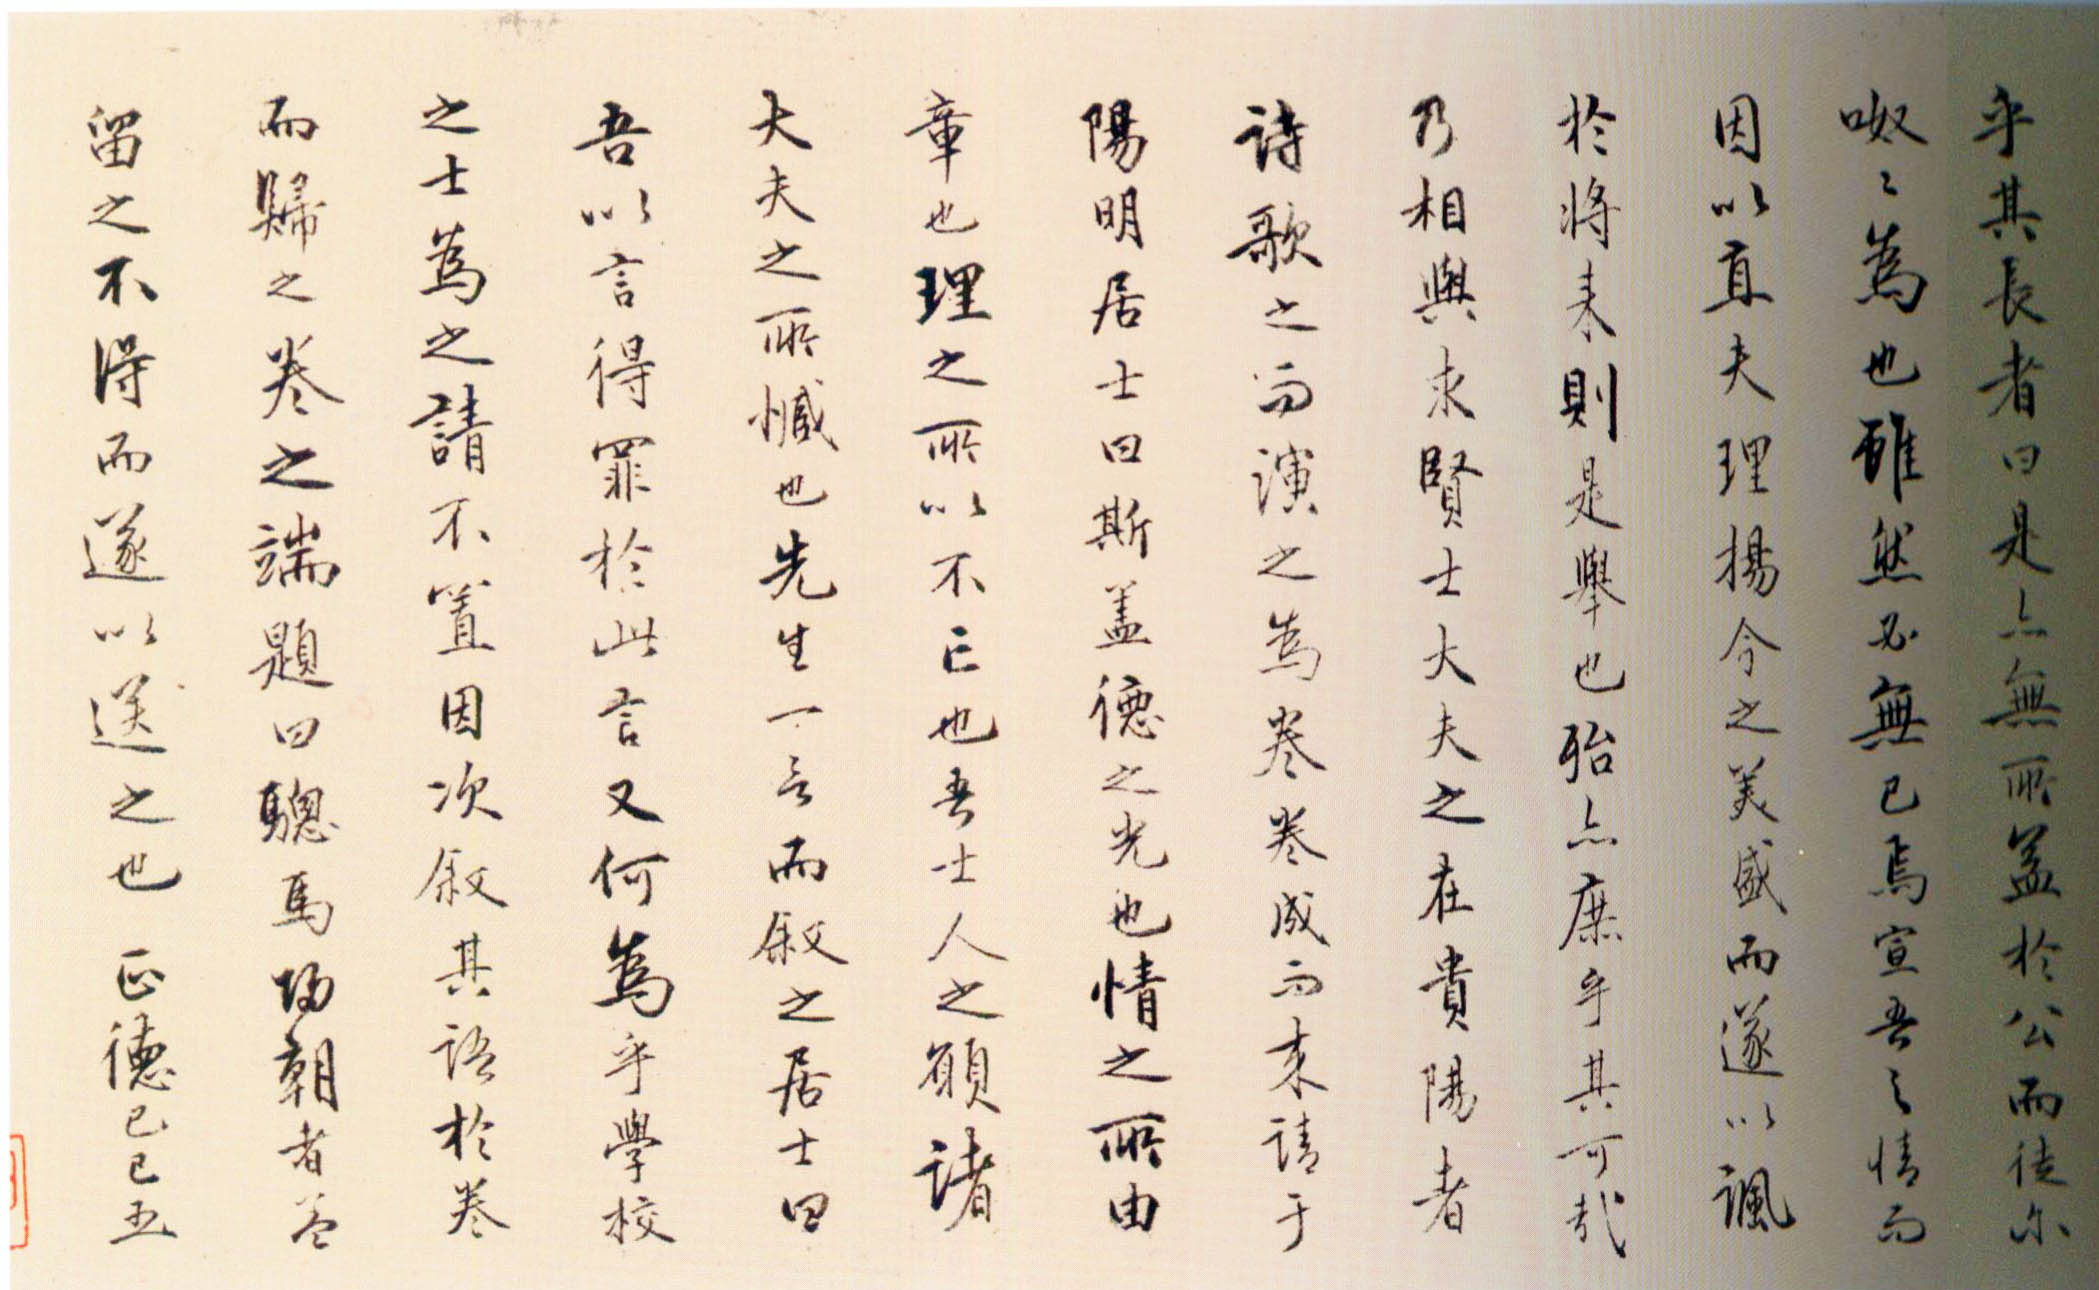 乎其長者曰是亦無所益於公而徒尔
呶〻為也雖然必無已焉宣吾之情而
因以直夫理揚今之美盛而遂以諷
於將来則是舉也殆亦庶乎其可哉
乃相與求賢士大夫之在貴陽者
詩歌之而演之為卷卷成而来請于
陽明居士曰斯蓋德之光也情之所由
章也理之所以不亡也吾士人之願諸
大夫之所慽也先生一言而叙之居士曰
吾以言得罪於此言又何為乎學校
之士為之請不置因次叙其語於卷
而歸之卷之端題曰驄馬歸朝者蓋
留之不得而遂以送之也 正德己巳五